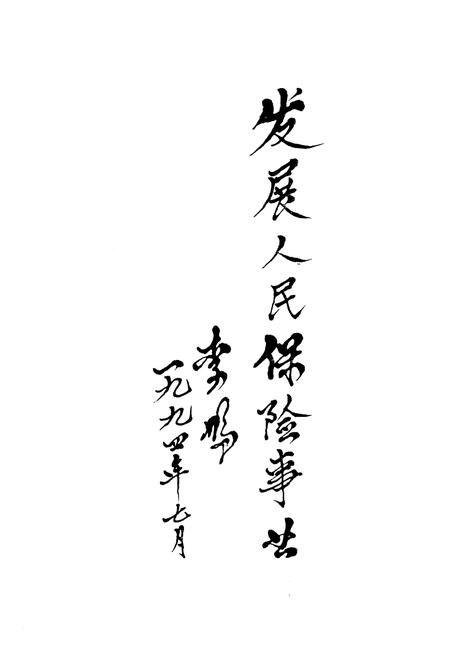 发展人民保险事业
李鹏
一九九四年七月